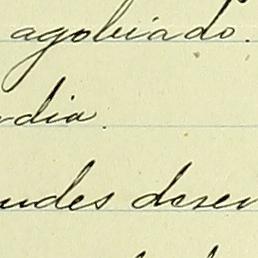 agobiado.
dia.
udes desen